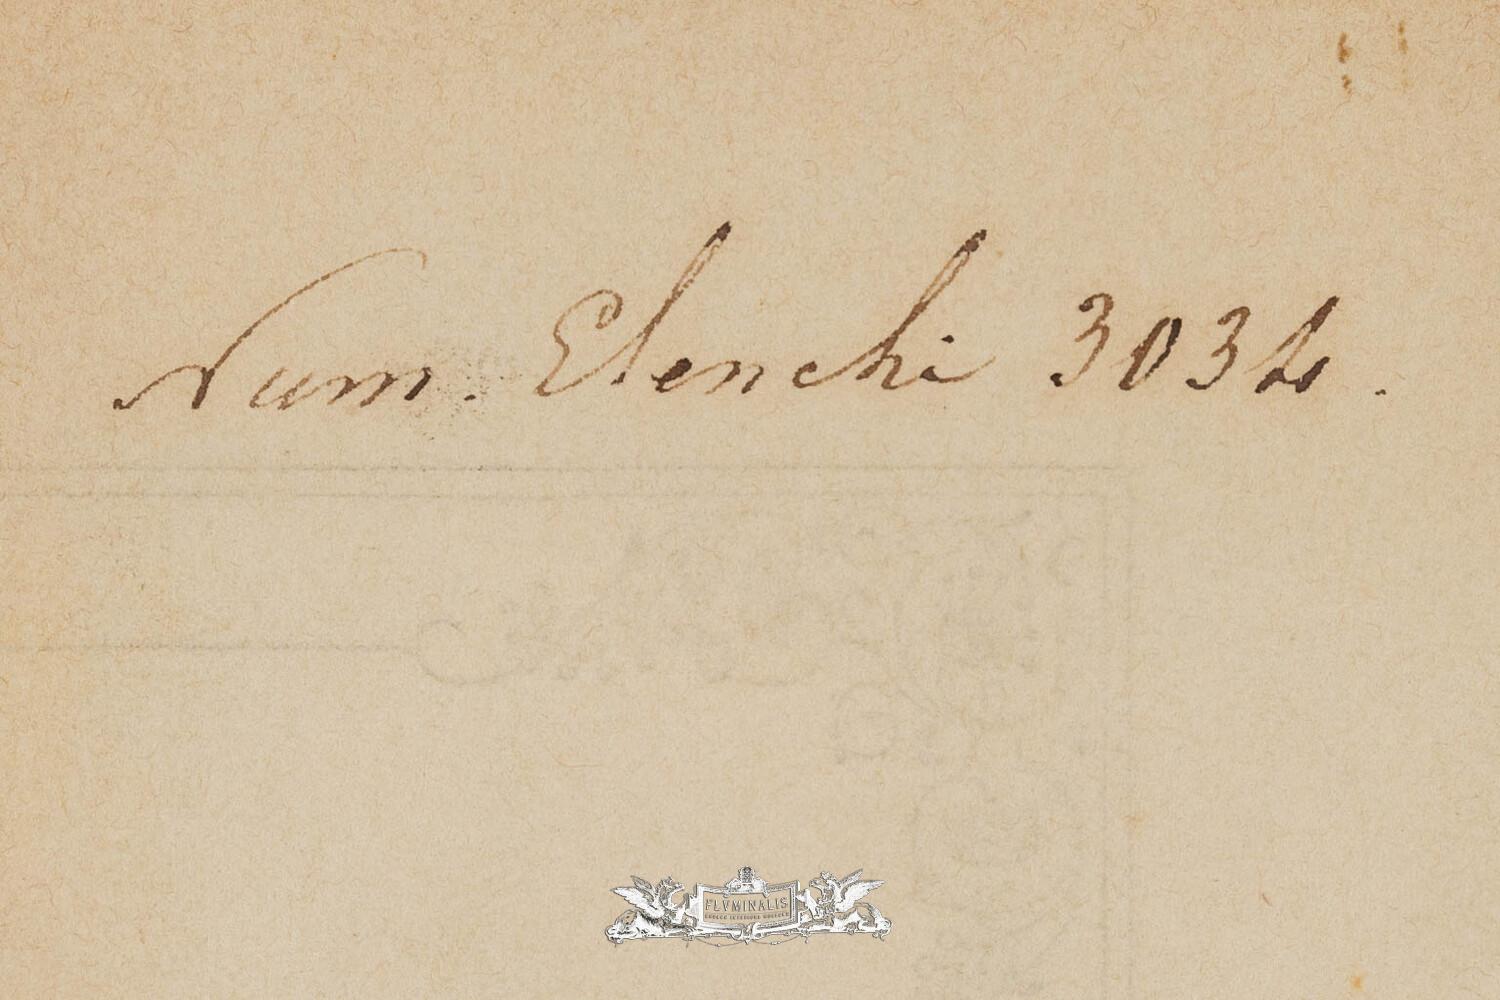 Num. Elenchi 3034.
FLVMINALIS